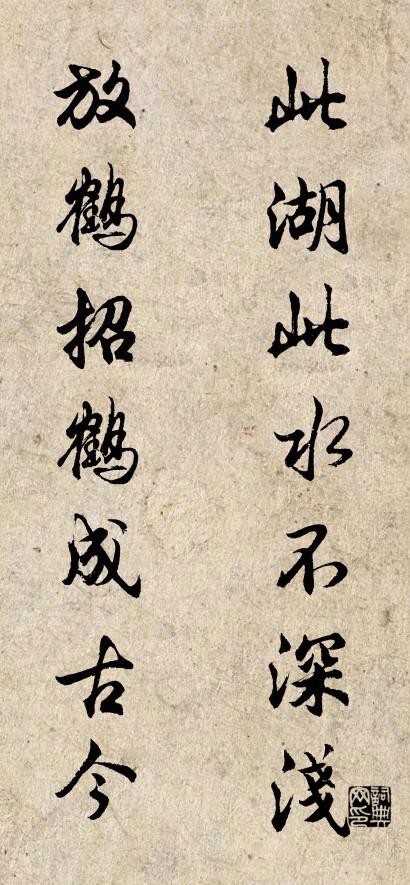 此湖此水不深淺
放鶴招鶴成古今
詞典网印